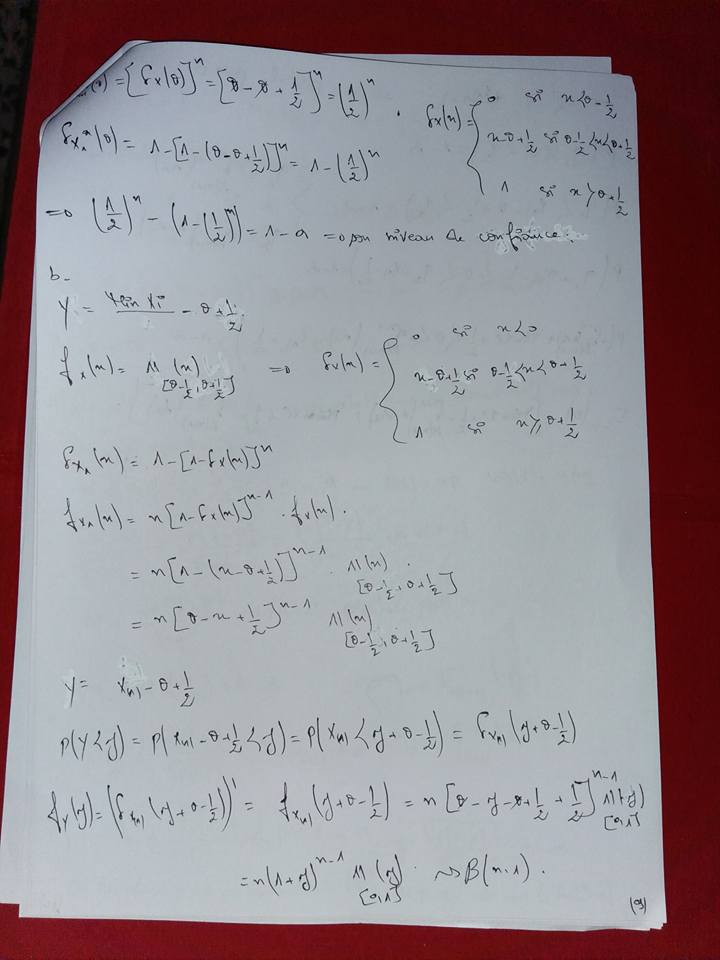 (θ) = [Fx(θ)]^n = [θ - θ + 1/2]^n = (1/2)^n . Fx(x) = { 0 si x < θ - 1/2
F_{X_1^n}(θ) = 1 - [1 - (θ - θ + 1/2)]^n = 1 - (1/2)^n x - θ + 1/2 si θ - 1/2 < x < θ + 1/2
1 si x > θ + 1/2
⇒ (1/2)^n - (1 - (1/2)^n) = 1 - α ⇒ niveau de confiance.
b-
Y = Min Xi - θ + 1/2
f_x(x) = 11(x) [θ - 1/2, θ + 1/2] ⇒ Fx(x) = { 0 si x < 0
x - θ + 1/2 si θ - 1/2 < x < θ + 1/2
1 si x ≥ θ + 1/2
F_{X_1}(x) = 1 - [1 - Fx(x)]^n
f_{X_1}(x) = n [1 - Fx(x)]^{n-1} . f_x(x) .
= n [1 - (x - θ + 1/2)]^{n-1} 11(x) . [θ - 1/2, θ + 1/2]
= n [θ - x + 1/2]^{n-1} 11(x) [θ - 1/2, θ + 1/2]
Y = X_{(1)} - θ + 1/2
P(Y < y) = P(X_{(1)} - θ + 1/2 < y) = P(X_{(1)} < y + θ - 1/2) = F_{X_{(1)}}(y + θ - 1/2)
f_Y(y) = (F_{X_{(1)}}(y + θ - 1/2))' = f_{X_{(1)}}(y + θ - 1/2) = n [θ - y - θ + 1/2 + 1/2]^{n-1} 11(y) [0,1]
= n (1 + y)^{n-1} 11(y) [0,1] . ~> β(n.1) .